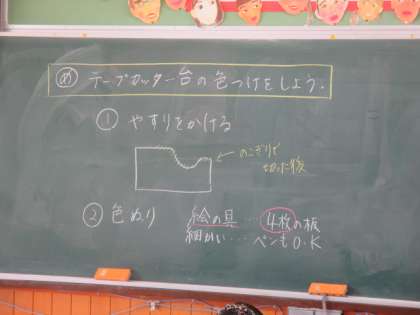 め テープカッター台の色つけをしよう.
① やすりをかける
のこぎりで
切った後
② 色ぬり 絵の具…4枚の板
細かい…ペンもO.K